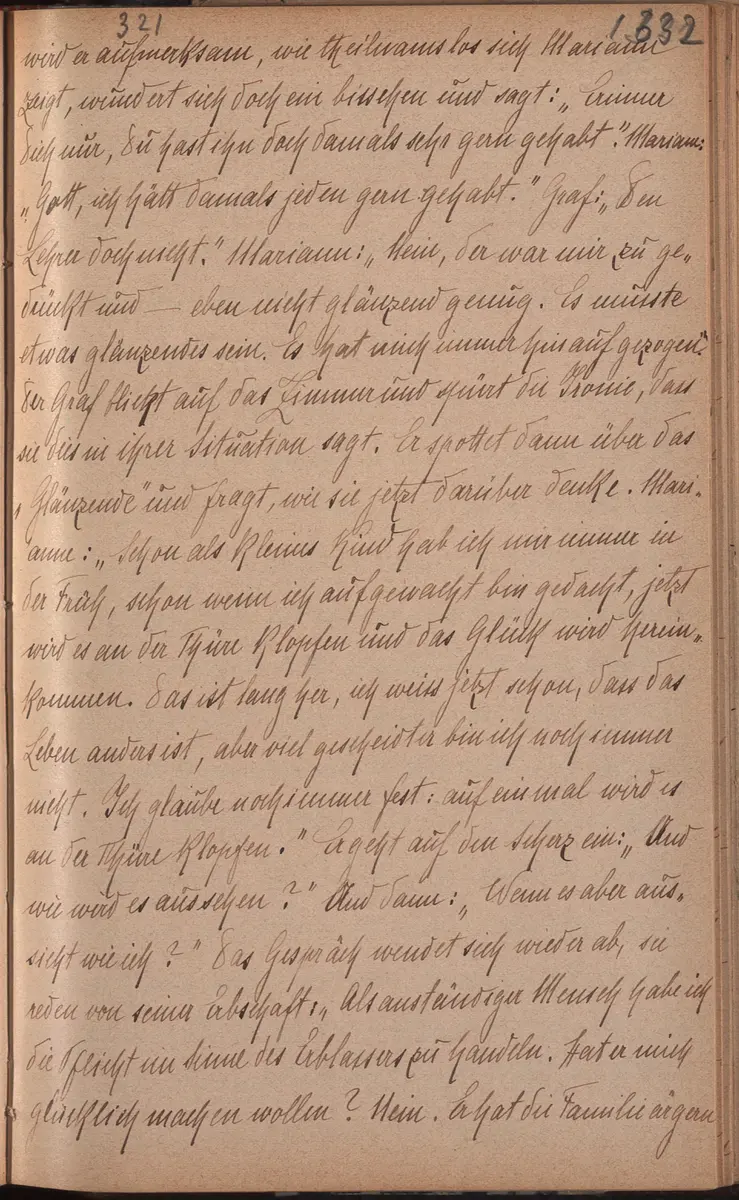 321 1332
wird er aufmerksam, wie theilnamslos sich Mariann
zeigt, wundert sich doch ein bisschen und sagt: „Erinner
dich nur, du hast ihn doch damals sehr gern gehabt". Mariann:
„Gott, ich hätt damals jeden gern gehabt." Graf: „Den
Lehrer doch nicht." Mariann: „Nein, der war mir zu ge„
drückt und — eben nicht glänzend genug. Es musste
etwas glänzendes sein. Es hat mich immer hinauf gezogen".
Der Graf blickt auf das Zimmer und spürt die Ironie, dass
sie dies in ihrer Situation sagt. Er spottet dann über das
„Glänzende" und fragt, wie sie jetzt darüber denke. Mari-
anne: „Schon als kleines Kind hab ich mir immer in
der Früh, schon wenn ich aufgewacht bin gedacht, jetzt
wird es an der Thüre klopfen und das Glück wird herein„
kommen. Das ist lang her, ich weiss jetzt schon, dass das
Leben anders ist, aber viel gescheidter bin ich noch immer
nicht. Ich glaube noch immer fest: auf einmal wird es
an der Thüre klopfen." Er geht auf den Scherz ein: „Und
wie wird es aussehen?" Und dann: „Wenn es aber aus„
sieht wie ich?" Das Gespräch wendet sich wieder ab, sie
reden von seiner Erbschaft: „Als anständiger Mensch habe ich
die Pflicht im Sinne des Erblassers zu handeln. Hat er mich
glücklich machen wollen? Nein. Er hat die Familie ärgern